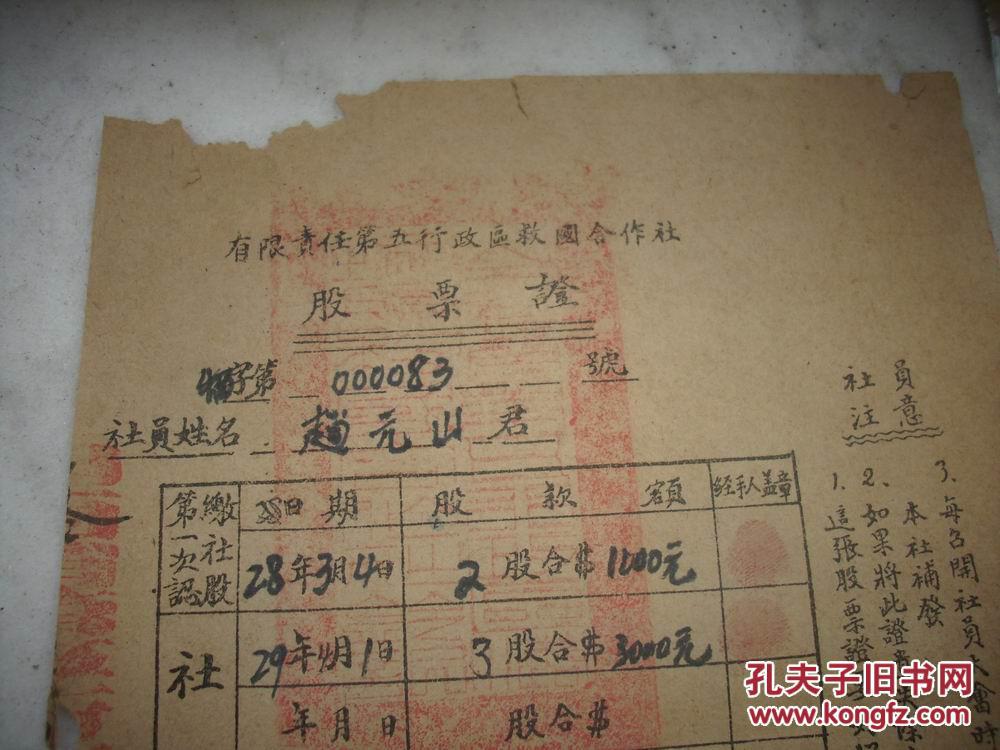 有限責任第五行政區救國合作社
股票證
字第 000083 號
社員姓名 趙元山 君
第一次認繳社股
日期 股款額 经手人盖章
28年3月4日 2股合弊1200元
社
29年 月1日 3股合弊3000元
年月日 股合弊
社員注意
1、這張股票證
2、如果將此證
本社補發
3、每名開社員大會時
孔夫子旧书网
www.kongfz.com